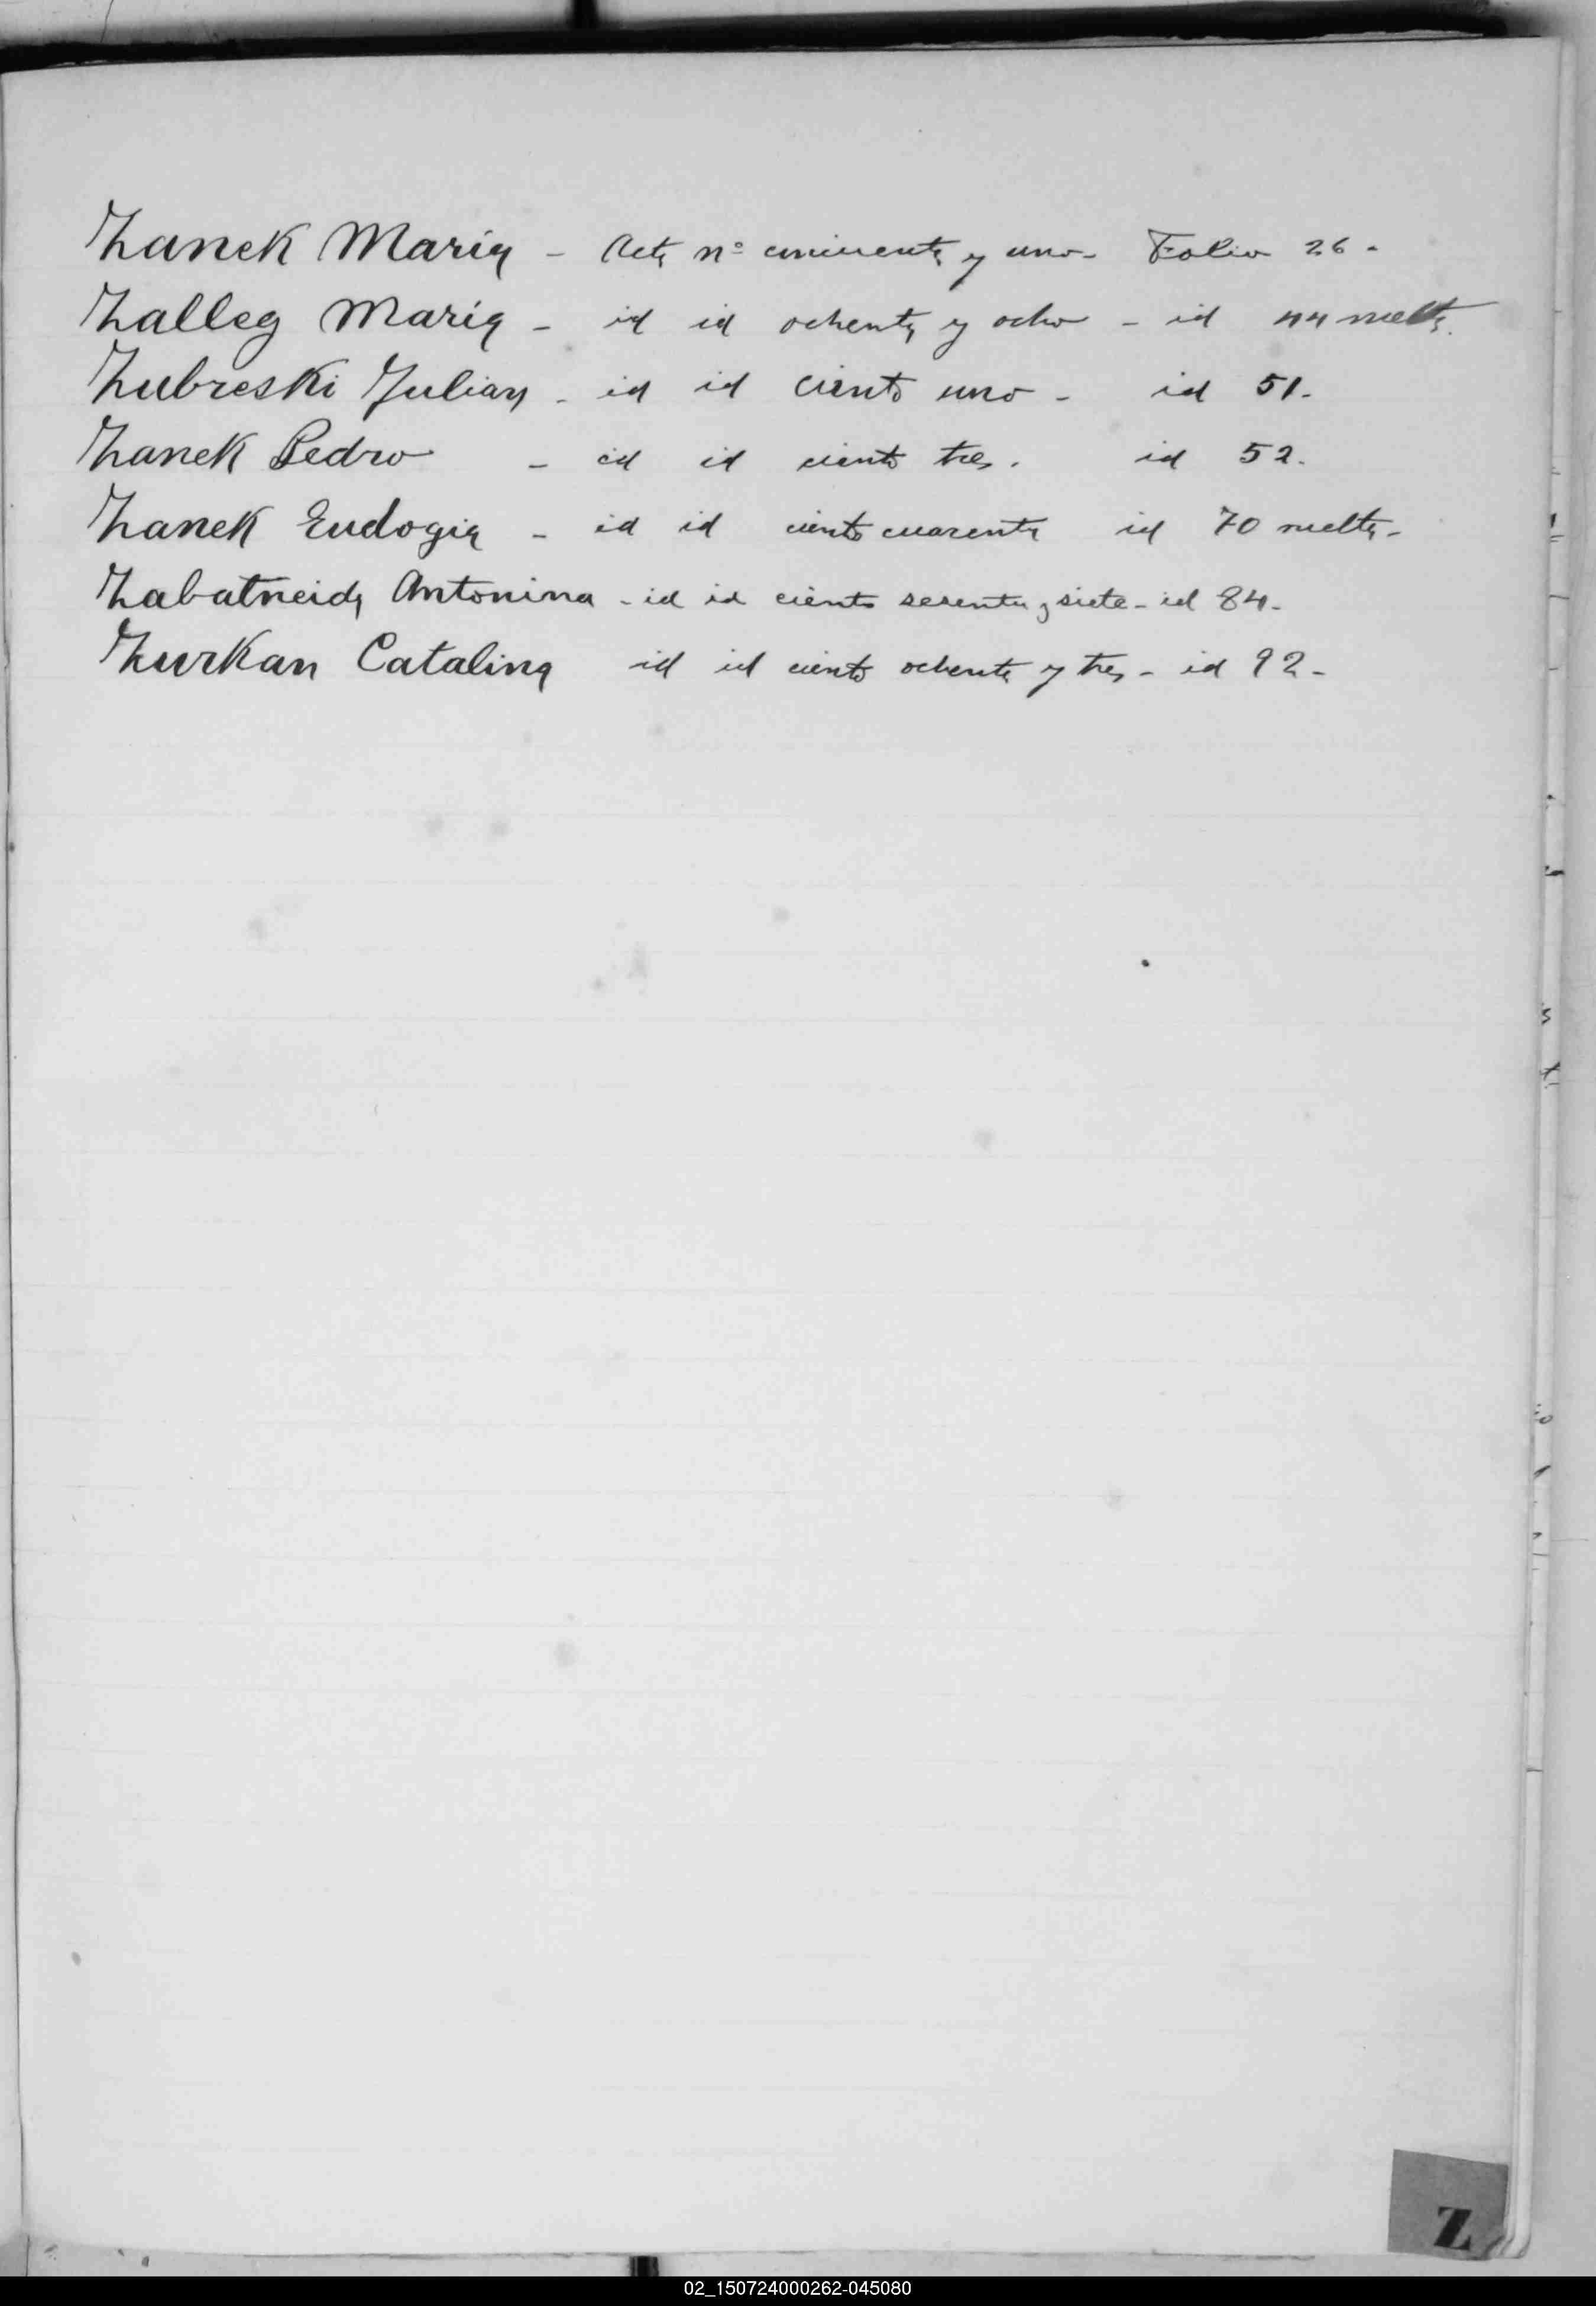 Zanek Maria - Acta nº cincuenta y uno - Folio 26 -
Zalleg Maria - id id ochenta y ocho - id 44 vuelta.
Zubreski Julian - id id ciento uno - id 51.
Zanek Pedro - id id ciento tres. id 52.
Zanek Eudogia - id id ciento cuarenta id 70 vuelta -
Zabatneida Antonina - id id ciento sesenta y siete - id 84 -
Zurkan Catalina id id ciento ochenta y tres - id 92 -
Z
02_150724000262-045080